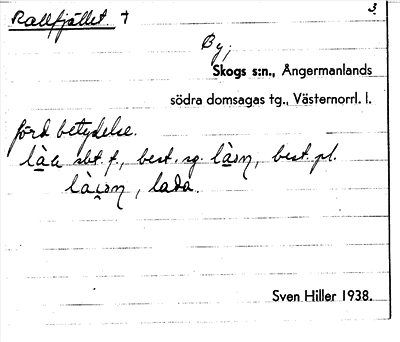 Rallfjället † 3.
By;
Skogs s:n., Ångermanlands
södra domsagas tg., Västernorrl. l.
förd betydelse.
sbt. f., best. sg. best. pl.
, lada.
Sven Hiller 1938.